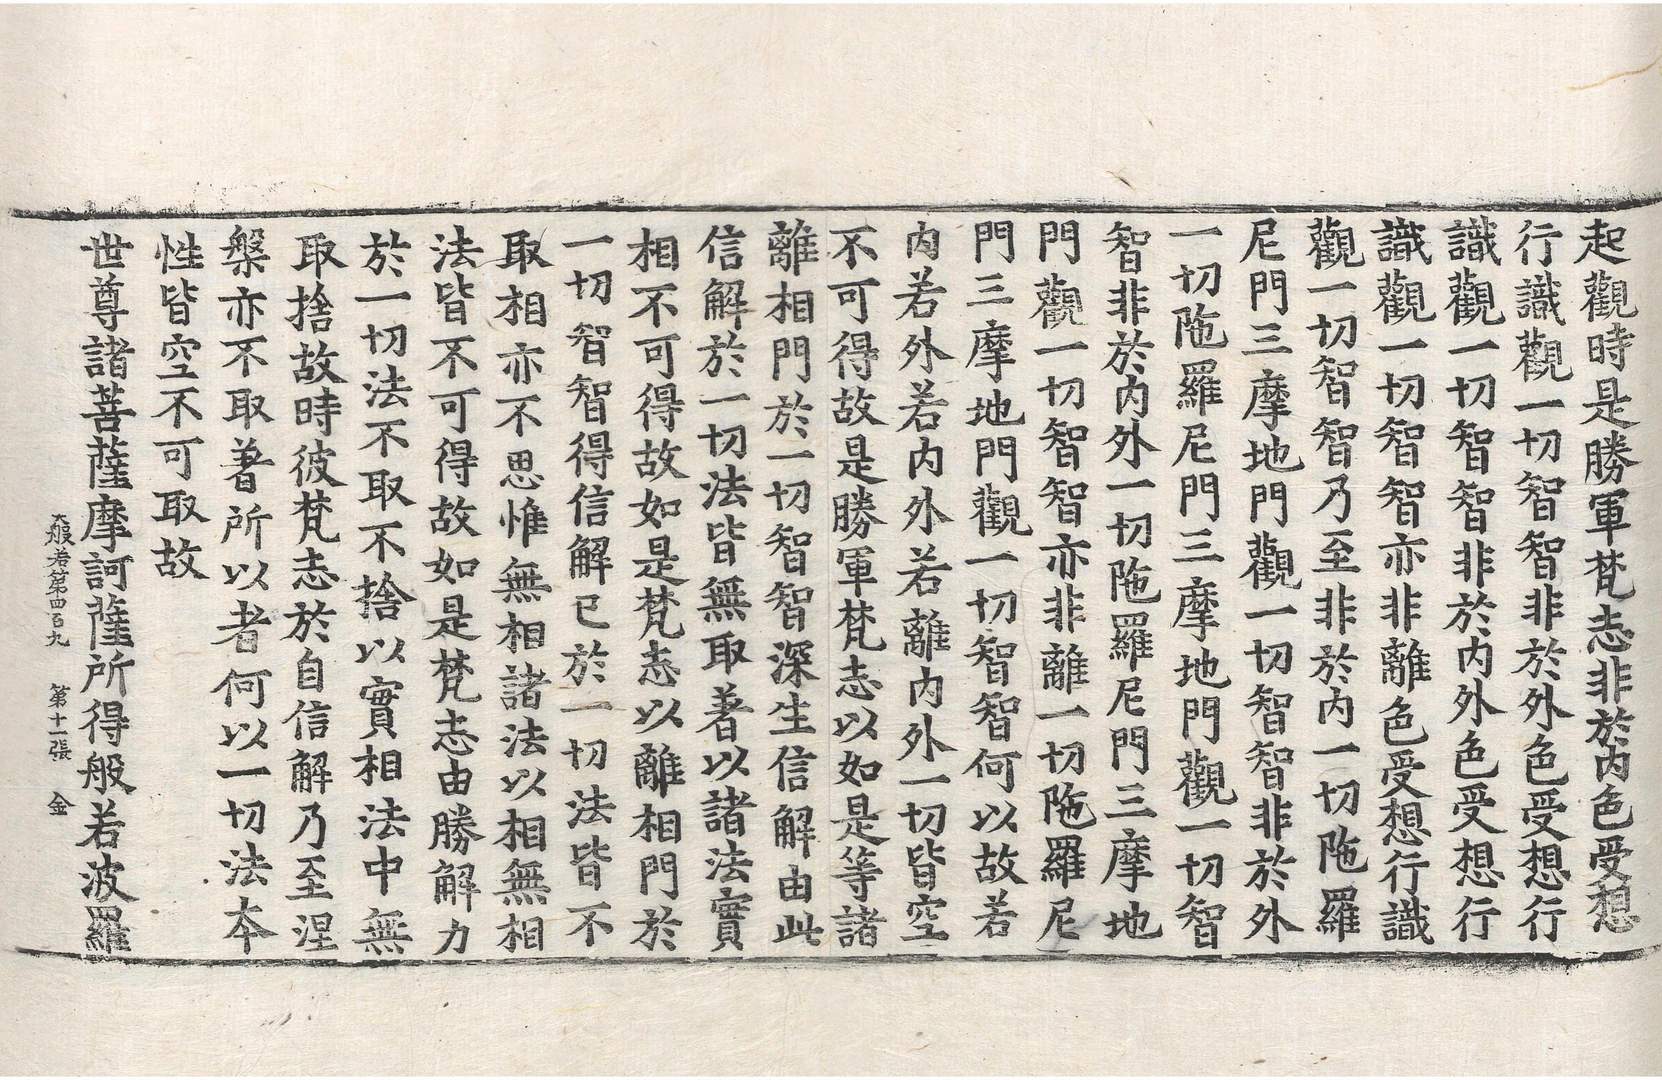 起觀時是勝軍梵志非於内色受想
行識觀一切智智非於外色受想行
識觀一切智智非於内外色受想行
識觀一切智智亦非離色受想行識
觀一切智智乃至非於内一切陁羅
尼門三摩地門觀一切智智非於外
一切陁羅尼門三摩地門觀一切智
智非於内外一切陁羅尼門三摩地
門觀一切智智亦非離一切陁羅尼
門三摩地門觀一切智智何以故若
内若外若内外若離内外一切皆空
不可得故是勝軍梵志以如是等諸
離相門於一切智智深生信解由此
信解於一切法皆無取著以諸法實
相不可得故如是梵志以離相門於
一切智智得信解已於一切法皆不
取相亦不思惟無相諸法以相無相
法皆不可得故如是梵志由勝解力
於一切法不取不捨以實相法中無
取捨故時彼梵志於自信解乃至涅
槃亦不取著所以者何以一切法本
性皆空不可取故
世尊諸菩薩摩訶薩所得般若波羅
大般若第四百九 第十一張 金